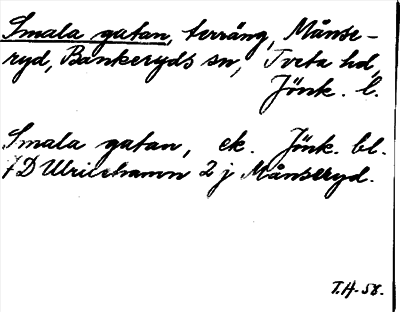 Smala gatan, terräng, Månse-
ryd, Bankeryds sn, Tveta hd,
Jönk. l.
Smala gatan, ek. Jönk. bl.
7D Ulricehamn 2 j Månseryd.
T.H. 58.